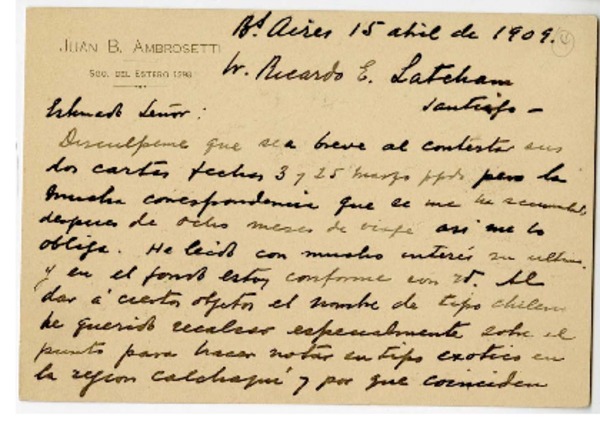 JUAN B. AMBROSETTI
SGO. DEL ESTERO 1298
Bs Aires 15 abril de 1909.
Sr. Ricardo E. Latcham
Santiago –
Estimado Señor:
Disculpeme que sea breve al contestar sus
dos cartas fechas 3 y 25 marzo ppdo pero la
mucha correspondencia que se me ha acumulado
despues de ocho meses de viaje asi me lo
obliga. He leido con mucho interés su ultima
y en el fondo estoy conforme con Vd. Al
dar á ciertos objetos el nombre de tipo chileno
he querido recalcar especialmente sobre el
punto para hacer notar su tipo exotico en
la region Calchaquí y por que coinciden